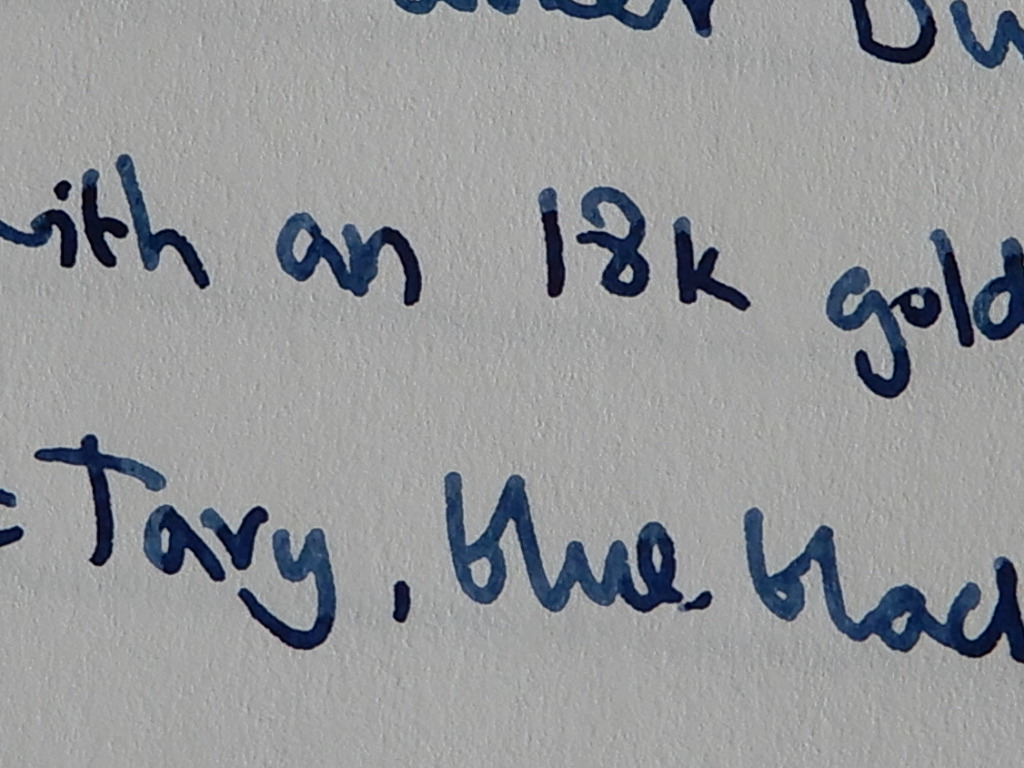 with an 18k gold
Tavy, blue black